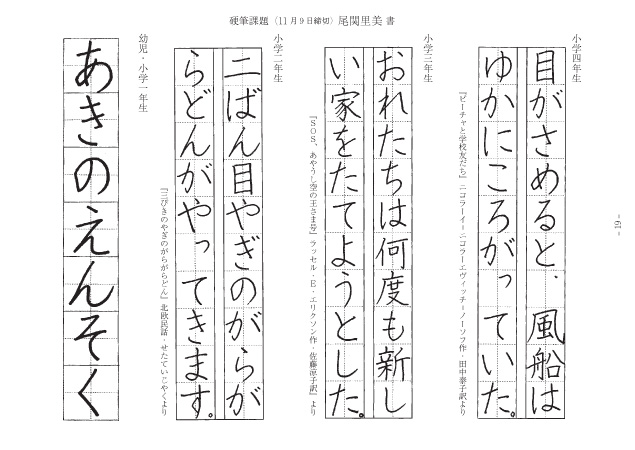 硬筆課題（11月9日締切）尾関里美 書
小学四年生
目がさめると、風船は
ゆかにころがっていた。
『ビーチャと学校友だち』ニコラーイ・ニコラーエヴィッチ・ノーソフ作・田中泰子訳より
小学三年生
おれたちは何度も新し
い家をたてようとした。
『SOS、あやうし空の王さま号』ラッセル・E・エリクソン作・佐藤凉子訳』より
小学二年生
二ばん目やぎのがらが
らどんがやってきます。
『三びきのやぎのがらがらどん』北欧民話・せたていじやくより
幼児・小学一年生
あきのえんそく
- 61 -